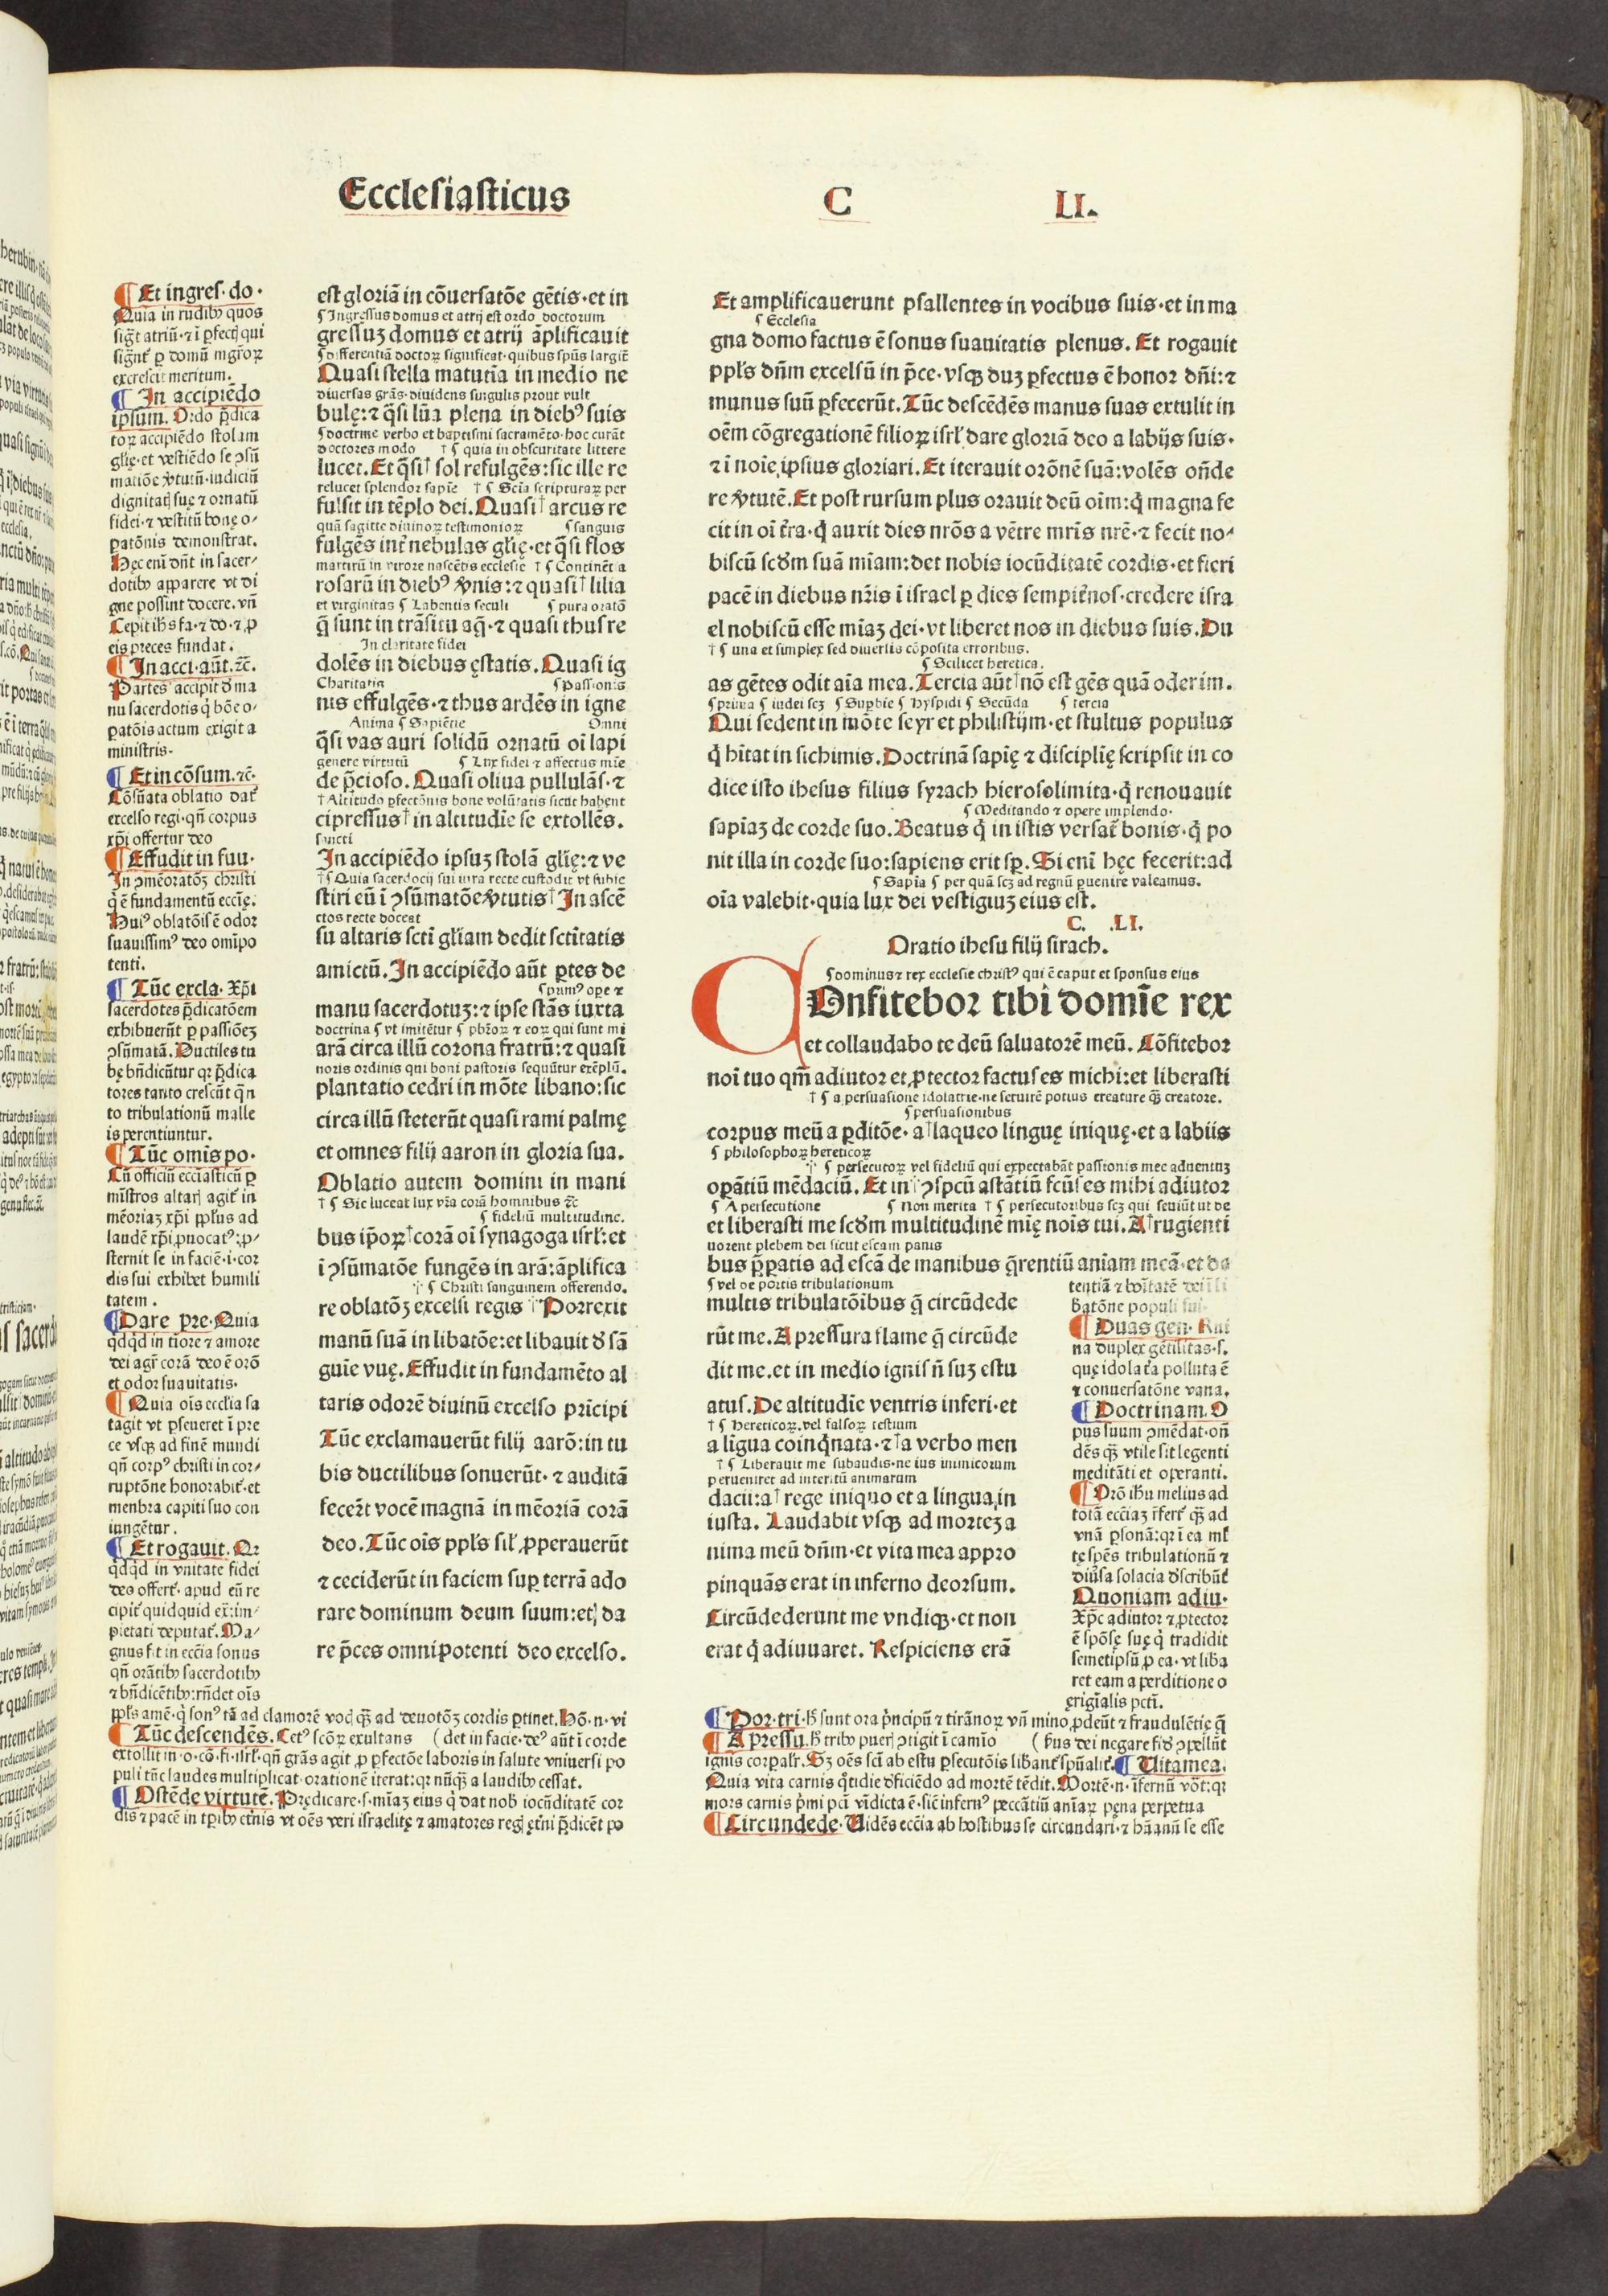 Ecclesiasticus C LI.
¶ Et ingres· do·
Quia in rudibꝰ quos
sigᷓt atriū·⁊ ī ꝑfectꝭ qui
sigᷓnt᷑ ꝑ domū mgr̄oꝝ
excrescit meritum.
¶ In accipiēdo
ipsum. Ordo p̄dica
toꝝ accipiēdo stolam
glīę·et vestiēdo se ꝯsū
matiōe v̓tutū·iudiciū
dignitatꝭ suę ⁊ ornatū
fidei·⁊ vestitū bonę o-
ꝑatōnis demonstrat.
Hęc enī dn̄t in sacer-
dotibꝰ apparere vt di
gne possint docere. vn̄
Cepit ih̄s fa·⁊ do·⁊ ꝓ
eis preces fundat.
¶ In acci·aūt·⁊c̄.
Partes accipit d̓ ma
nu sacerdotis q̇ bōe o-
ꝑatōis actum exigit a
ministris.
¶ Et in cōsum.⁊c̄·
Cōsūata oblatio dat᷑
excelso regi·qn̄ corpus
xp̄i offertur deo
¶ Effudit in fun·
In ꝯmēoratōꝫ christi
q̇ ē fundamentū eccīę.
Huiꝰ oblatōīs ē odor
suauissimꝰ deo omīpo
tenti.
¶ Tūc excla· Xp̄i
sacerdotes p̄dicatōem
exhibuerūt ꝑ passiōeꝫ
ꝯsūmatā. Ductiles tu
bę bn̄dicūtur qꝛ p̄dica
tores tanto crescūt qᷓn
to tribulationū malle
is percutiuntur.
¶ Tūc omīs po·
Cū officiū eccīasticū ꝑ
mīstros altarꝭ agit᷑ in
mēoriaꝫ xp̄i pplꝰus ad
laudē xp̄i ꝓuocatꝰ:ꝓ-
sternit se in faciē·ī·cor
dis sui exhibet humili
tatem.
¶ Dare pre·Quia
qd̓qd̓ in tīore ⁊ amore
dei agit᷑ corā deo ē orō
et odor suauitatis.
¶ Quia oīs eccl̄ia sa
tagit vt ꝑseueret ī pre
ce vsqꝫ ad finē mundi
qn̄ corpꝰ christi in cor-
ruptōne honorabit᷑·et
menbra capiti suo con
iungētur.
¶ Et rogauit. Qꝛ
qd̓qd̓ in vnitate fidei
deo offert᷑·apud eū re
cipit᷑ quidquid ex̄:im-
pietati deputat᷑. Ma-
gnus fit in eccīa sonus
qn̄ orātibꝰ sacerdotibꝰ
⁊ bn̄dicētibꝰ:rn̄det oīs
ppl̄s amē·q̇ sonꝰ tā ad clamorē vocꝭ qᷓꝫ ad deuotōꝫ cordis ꝑtinet. Hō·n·vi
¶ Tūc descendēs. Cetꝰ scōꝝ exultans (det in facie·deꝰ aūt ī corde
extollit in·o·cō·fi·isrl̄·qn̄ grās agit ꝓ ꝑfectōe laboris in salute vniuersi po
puli tūc laudes multiplicat·orationē iterat:qꝛ nūqᷓ a laudibꝰ cessat.
¶ Ostēde virtutē. Prędicare·s·mīaꝫ eius q̇ dat nob̄ iocūditatē cor
dis ⁊ pacē in tꝑibꝰ etnis vt oēs veri israelitę ⁊ amatores regꝭ ętn̄i p̄dicēt po
est gloriā in cōuersatōe gētis·et in
¶ Ingressus domus et atrij est ordo doctorum
gressuꝫ domus et atrij āplificauit
¶ differentiā doctoꝝ significat·quibus spūs largit᷑
Quasi stella matutīa in medio ne
diuersas grās·diuidens singulis prout vult
bulę:⁊ qᷓsi lūa plena in diebꝰ suis
¶ doctrine verbo et baptismi sacramēto·hoc curāt
doctores modo † ¶ quia in obscuritate littere
lucet. Et qᷓsi† sol refulgēs:sic ille re
relucet splendor sapīe † ¶ Scīa scripturaꝝ per
fulsit in tēplo dei. Quasi† arcus re
quā sagitte diuinoꝝ testimonioꝝ ¶ sanguis
fulgēs int᷑ nebulas glīę·et qᷓsi flos
martirū in virore nascētis ecclesie † ¶ Continēt a
rosarū in diebꝰ v̓nis:⁊ quasi† lilia
et virginitas ¶ Labentis seculi ¶ pura oratō
q̄ sunt in trāsitu aqᷓ·⁊ quasi thus re
In claritate fidei
dolēs in diebus ęstatis. Quasi ig
Charitatis ¶ Passionis
nis effulgēs·⁊ thus ardēs in igne
Anima ¶ Sapiētie Omni
qᷓsi vas auri solidū ornatū oī lapi
genere virtutū ¶ Lux fidei ⁊ affectus mīe
de p̄cioso. Quasi oliua pullulās·⁊
† Altitudo ꝑfectōnis bone volūtatis sicut habent
cipressus† in altitudīe se extollēs.
sancti
In accipiēdo ipsuꝫ stolā glīę:⁊ ve
† ¶ Quia sacerdocij sui iura recte custodit vt subie
stiri eū ī ꝯsūmatōe v̓tutis† In ascē
ctos recte doceat
su altaris scti gl̄iam dedit sctītatis
amictū. In accipiēdo aūt ꝑtes de
¶ pūmꝰ ope ⁊
manu sacerdotuꝫ:⁊ ipse stās iuxta
doctrina ¶ vt imitētur ¶ pbr̄oꝝ ⁊ eoꝝ qui sunt mi
arā circa illū corona fratrū:⁊ quasi
noris ordinis qui boni pastoris sequūtur exēplū.
plantatio cedri in mōte libano:sic
circa illū steterūt quasi rami palmę
et omnes filij aaron in gloria sua.
Oblatio autem domini in mani
† ¶ Sic luceat lux vr̄a corā hominibus ⁊c̄
¶ fideliū multitudine.
bus ip̄oꝝ† corā oī synagoga isrl̄:et
ī ꝯsūmatōe fungēs in arā:āplifica
† ¶ Christi sanguinem offerendo.
re oblatōꝫ excelsi regis † Porrexit
manū suā in libatōe:et libauit d̓ sā
guīe vuę. Effudit in fundamēto al
taris odorē diuinū excelso prīcipi
Tūc exclamauerūt filij aarō:in tu
bis ductilibus sonuerūt·⁊ auditā
fecert᷑ vocē magnā in mēoriā corā
deo. Tūc oīs ppl̄s sil̄ ꝓperauerūt
⁊ ceciderūt in faciem suꝑ terrā ado
rare dominum deum suum:et da
re p̄ces omnipotenti deo excelso.
Et amplificauerunt psallentes in vocibus suis·et in ma
¶ Ecclesia
gna domo factus ē sonus suauitatis plenus. Et rogauit
ppl̄s dn̄m excelsū in p̄ce·vsqꝫ duꝫ ꝑfectus ē honor dn̄i:⁊
munus suū ꝑfecerūt. Tūc descēdēs manus suas extulit in
oēm cōgregationē filioꝝ isrl̄ dare gloriā deo a labijs suis·
⁊ ī noīe ipsius gloriari. Et iterauit orōnē suā:volēs on̄de
re v̓tutē. Et post rursum plus orauit deū oīm:q̇ magna fe
cit in oī t̄ra·q̇ auxit dies nr̄os a vētre mr̄is nr̄ē·⁊ fecit no-
biscū scd̓m suā mīam:det nobis iocūditatē cordis·et fieri
pacē in diebus nr̄is ī israel ꝑ dies sempit᷑nos·credere isra
el nobiscū esse mīaꝫ dei·vt liberet nos in diebus suis. Du
† ¶ una et simplex sed diuersis cōposita erroribus.
¶ Scilicet heretica.
as gētes odit aīa mea. Tercia aūt† nō est gēs quā oderim.
¶ prima ¶ iudei scꝫ ¶ Suꝑbie ¶ hyspidi ¶ Secūda ¶ tercia
Qui sedent in mōte seyr et philistijm·et stultus populus
q̇ hītat in sichimis. Doctrinā sapīę ⁊ disciplīę scripsit in co
dice isto ihesus filius syrach hierosolimita·q̇ renouauit
¶ Meditando ⁊ opere implendo·
sapīaꝫ de corde suo. Beatus q̇ in istis versat᷑ bonis·q̇ po
nit illa in corde suo:sapiens erit sꝑ. Si enī hęc fecerit:ad
¶ Sapīa ¶ per quā scꝫ ad regnū ꝑuenire valeamus.
oīa valebit·quia lux dei vestigiuꝫ eius est.
C. .LI.
Oratio ihesu filij sirach.
¶ dominus ⁊ rex ecclesie christꝰ qui ē caput et sponsus eius
COnfitebor tibi domīe rex
et collaudabo te deū saluatorē meū. Cōfitebor
noī tuo qm̄ adiutor et ꝓtector factus es michi:et liberasti
† ¶ a persuasione idolatrie·ne seruirē potius creature qᷓꝫ creatore.
¶ persuasionibus
corpus meū a ꝑditōe· a† laqueo linguę iniquę·et a labiis
¶ philosophoꝝ hereticoꝝ
† ¶ persecutoꝝ vel fideliū qui expectabāt passionis mee aduentuꝫ
opāntiū mēdaciū. Et in† ꝯspcū astātiū fcūs es mihi adiutor
¶ A persecutione ¶ Non merita † ¶ persecutoribus scꝫ qui seuiūt ut de
et liberasti me scd̓m multitudinē mīę noīs tui. A† rugienti
uorent plebem dei sicut escam panis
bus p̄ꝑatis ad escā de manibus qᷓrentiū aniam meā·et da
¶ vel de portis tribulationum
multis tribulatōibus q̄ circūdede
rūt me. A pressura flame q̄ circūde
dit me·et in medio ignis n̄ suꝫ estu
atus. De altitudīe ventris inferi·et
† ¶ hereticoꝝ·vel falsoꝝ testium
a līgua coinq̇nata·⁊† a verbo men
† ¶ Liberauit me subaudis·ne ius inimicorum
perueniret ad interitū animarum
dacii:a† rege iniquo et a lingua in
iusta. Laudabit vsqꝫ ad morteꝫ a
nima meū dn̄m·et vita mea appro
pinquās erat in inferno deorsum.
Circūdederunt me vndiqꝫ·et non
erat q̇ adiuuaret. Respiciens erā
tentiā ⁊ bonitatē
batōne populi sui
¶ Duas gen·
na duplex gētilitas·s·
quę idolat᷑a polluta ē
⁊ conuersatōne vana.
¶ Doctrinam. O
pus suum ꝯmēdat·on̄
dēs qᷓꝫ vtile sit legenti
meditāti et operanti.
¶ Orō ih̄u melius ad
totā eccīaꝫ r̄fert᷑ qᷓꝫ ad
vnā ꝑsonā:qꝛ ī ea ml̄
tę spēs tribulationū ⁊
diūsa solacia d̓scribūt᷑
Quoniam adiu·
Xp̄c adiutor ⁊ ꝓtector
ē spōsę suę q̇ tradidit
semetipsū ꝓ ea·vt liba
ret eam a perditione o
ęrigīalis pcti.
¶ Por·tri·h̄ sunt ora p̄ncipū ⁊ tirānoꝝ vn̄ mino ꝓdeūt ⁊ fraudulētię q̄
¶ A pressu. h̄ tribꝰ puerꝭ ꝯtigit ī camīo (bus dei negare fid̓ ꝯpellūt
ignis corꝑal᷑r. Sꝫ oēs scī ab estu ꝑsecutōis libant᷑ spūalit᷑. ¶ Uita mea.
Quia vita carnis q̇tidie d̓ficiēdo ad mortē tēdit. Mortē·n·īfernū vōt:qꝛ
mors carnis p̄mi pcī vīdicta ē·sic infernꝰ peccātiū anīaꝝ pęna perpetua
¶ Circundede· Uidēs eccīa ab hostibus se circundari·⁊ hūanū se esse